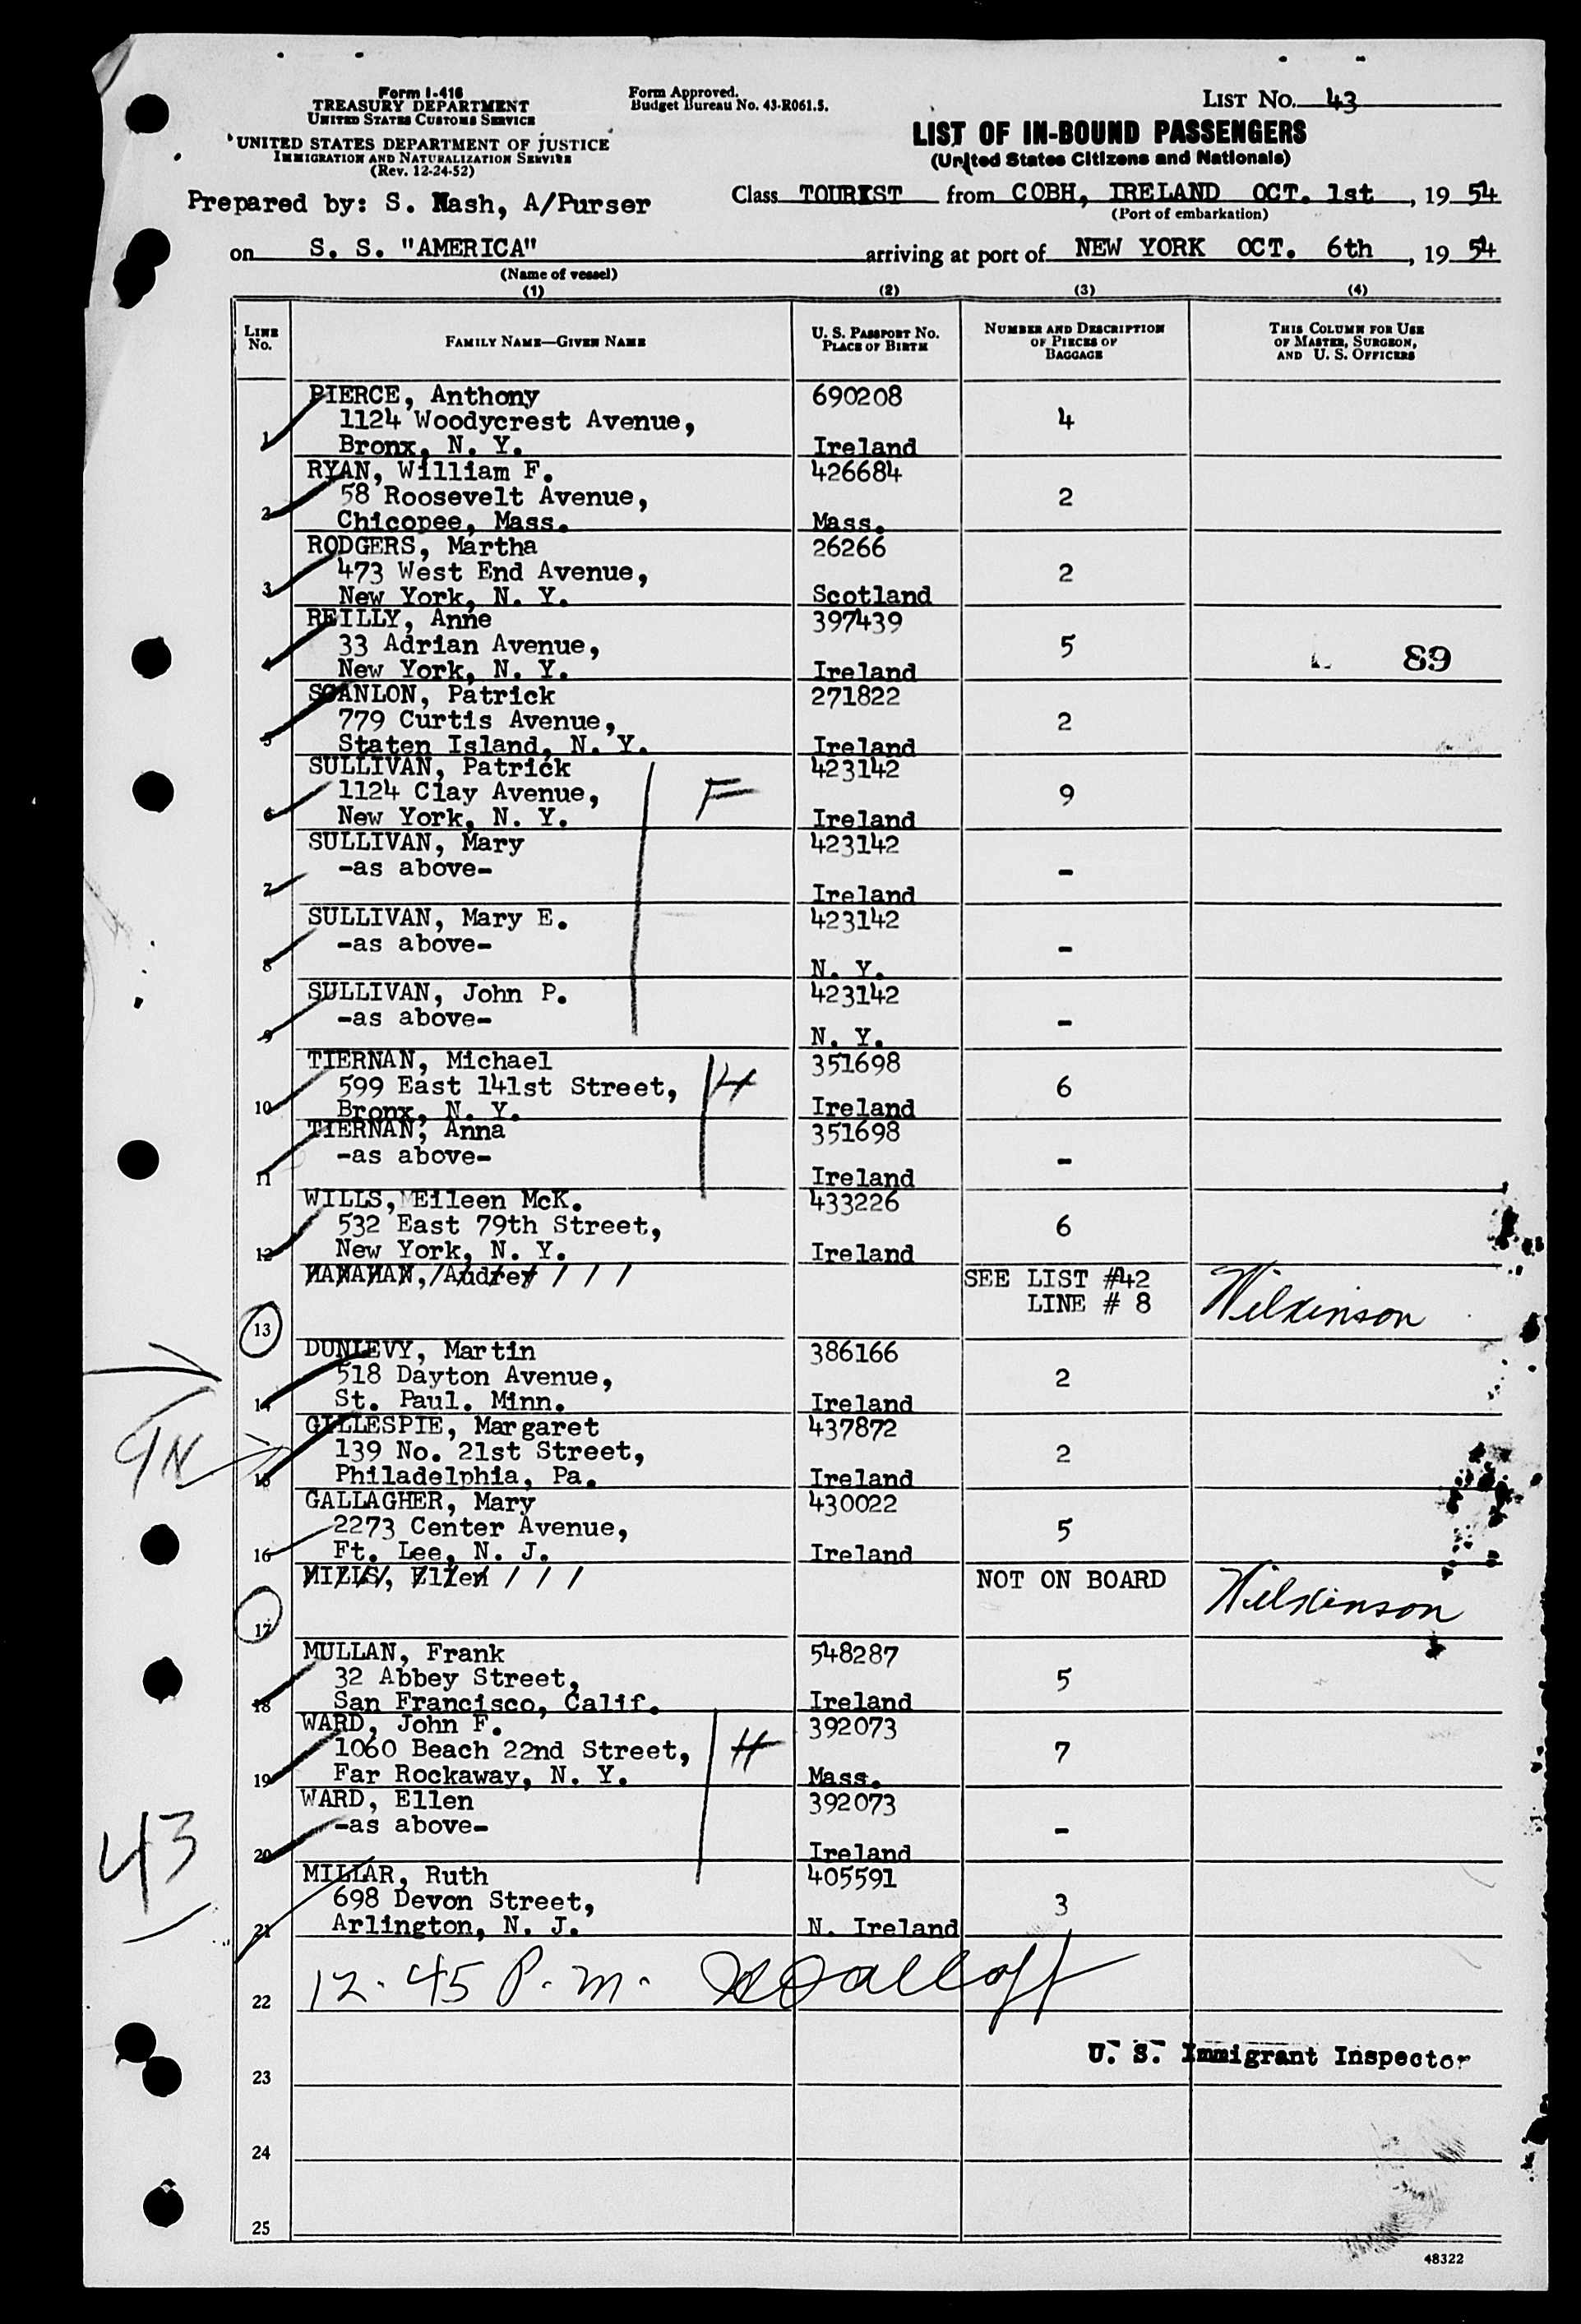 Form I-418
TREASURY DEPARTMENT
UNITED STATES CUSTOMS SERVICE
UNITED STATES DEPARTMENT OF JUSTICE
IMMIGRATION AND NATURALIZATION SERVICE
(Rev. 12-24-52)
Form Approved.
Budget Bureau No. 43-R061.5.
LIST No. 43
LIST OF IN-BOUND PASSENGERS
(United States Citizens and Nationals)
Prepared by: S. Nash, A/Purser
Class TOURIST from COBH, IRELAND OCT. 1st, 19 54
(Port of embarkation)
on S. S. "AMERICA" arriving at port of NEW YORK OCT. 6th, 19 54
(Name of vessel)
(1) (2) (3) (4)
LINE No.
FAMILY NAME—GIVEN NAME
U. S. PASSPORT NO.
PLACE OF BIRTH
NUMBER AND DESCRIPTION
OF PIECES OF
BAGGAGE
THIS COLUMN FOR USE
OF MASTER, SURGEON,
AND U. S. OFFICERS
PIERCE, Anthony 690208
1124 Woodycrest Avenue, 4
1 Bronx, N. Y. Ireland
RYAN, William F. 426684
2 58 Roosevelt Avenue, 2
Chicopee, Mass. Mass.
RODGERS, Martha 26266
473 West End Avenue, 2
3 New York, N. Y. Scotland
REILLY, Anne 397439
33 Adrian Avenue, 5 89
4 New York, N. Y. Ireland
SCANLON, Patrick 271822
779 Curtis Avenue, 2
5 Staten Island, N. Y. Ireland
SULLIVAN, Patrick 423142
1124 Clay Avenue, F 9
6 New York, N. Y. Ireland
SULLIVAN, Mary 423142
-as above- -
7 Ireland
SULLIVAN, Mary E. 423142
-as above- -
8 N. Y.
SULLIVAN, John P. 423142
-as above- -
9 N. Y.
TIERNAN, Michael 351698
599 East 141st Street, H 6
10 Bronx, N. Y. Ireland
TIERNAN, Anna 351698
-as above- -
11 Ireland
WILLS, Eileen McK. 433226
532 East 79th Street, 6
12 New York, N. Y. Ireland
HANAHAN, Audrey SEE LIST #42
LINE # 8 Wilkinson
13
DUNLEVY, Martin 386166
518 Dayton Avenue, 2
14 St. Paul. Minn. Ireland
GILLESPIE, Margaret 437872
139 No. 21st Street, 2
9N
15 Philadelphia, Pa. Ireland
GALLAGHER, Mary 430022
2273 Center Avenue, 5
16 Ft. Lee, N. J. Ireland
MILLS, Ellen NOT ON BOARD Wilkinson
17
MULLAN, Frank 548287
32 Abbey Street, 5
18 San Francisco, Calif. Ireland
WARD, John F. 392073
1060 Beach 22nd Street, H 7
19 Far Rockaway, N. Y. Mass.
WARD, Ellen 392073
-as above- -
43
20 Ireland
MILLAR, Ruth 405591
698 Devon Street, 3
21 Arlington, N. J. N. Ireland
12.45 P.m.
22
U. S. Immigrant Inspector
23
24
25
48322